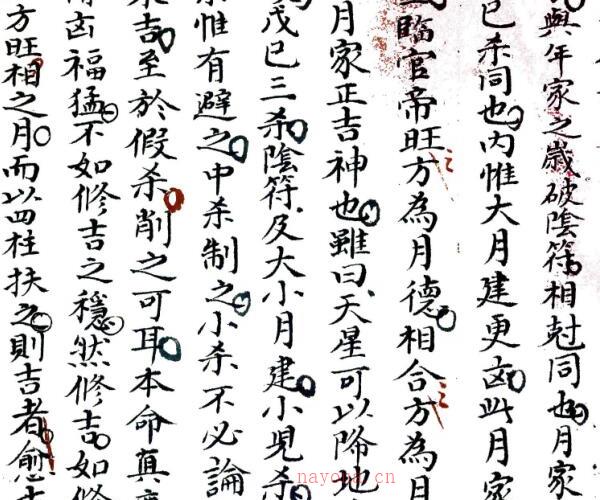 與年家之歲破陰符相尅同也月家
巳杀同也内惟大月建更凶此月家
臨官帝旺方為月德相合方為月
月家正吉神也雖曰天星可以降地
戊巳三杀陰符及大小月建小児杀
惟有避之中杀制之小杀不必論
吉至於假杀削之可耳本命真
凶福猛不如修吉之穩然修吉如修
方旺相之月而以四柱扶之則吉者愈
nayona.cn